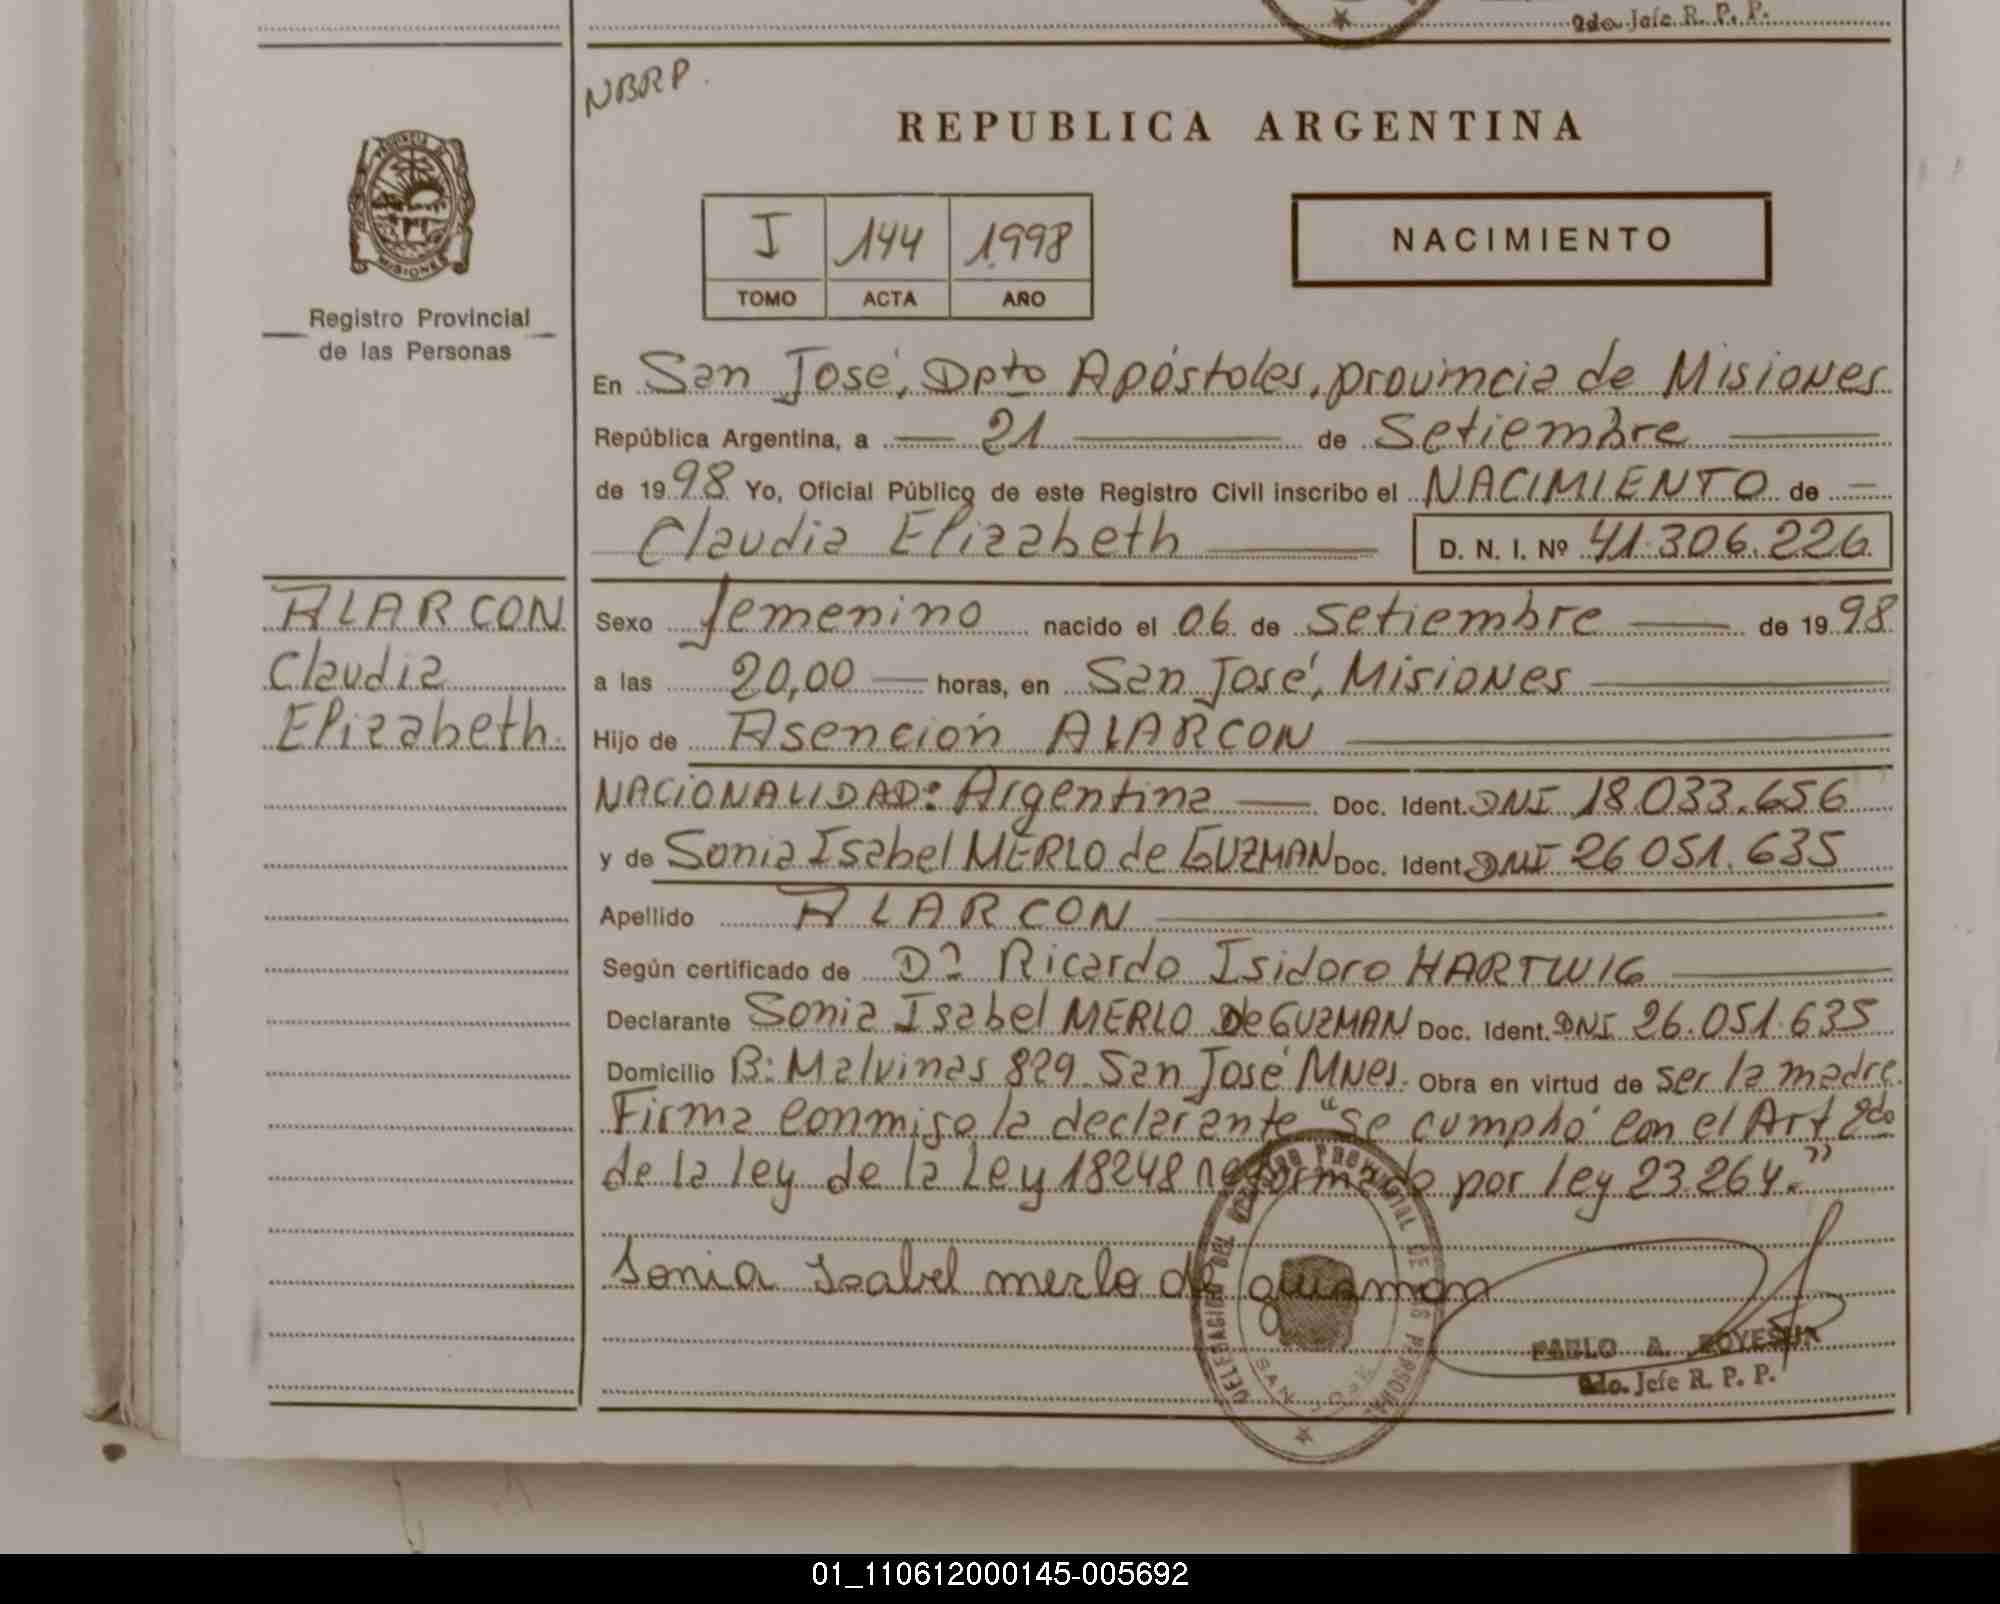 2do. Jefe R. P. P.
NBRP.
REPUBLICA ARGENTINA
PROVINCIA DE
MISIONES
Registro Provincial
de las Personas
I 144 1998
TOMO ACTA AÑO
NACIMIENTO
En San José, Dpto Apóstoles, provincia de Misiones
República Argentina, a — 21 — de Setiembre —
de 1998 Yo, Oficial Público de este Registro Civil inscribo el NACIMIENTO de —
Claudia Elizabeth — D. N. I. Nº 41.306.226
ALARCON
Claudia
Elizabeth.
Sexo femenino nacido el 06 de setiembre — de 1998
a las 20,00 — horas, en San José, Misiones —
Hijo de Asención ALARCON —
NACIONALIDAD: Argentina — Doc. Ident. DNI 18.033.656
y de Sonia Isabel MERLO de GUZMAN Doc. Ident. DNI 26 051.635
Apellido ALARCON —
Según certificado de Dr Ricardo Isidoro HARTWIG —
Declarante Sonia Isabel MERLO De GUZMAN Doc. Ident. DNI 26.051.635
Domicilio B: Malvinas 829 San José Mnes. Obra en virtud de ser la madre.
Firma conmigo la declarante "se cumplió con el Art 2do
de la ley de la Ley 18248 reformado por ley 23.264."
Sonia Isabel merlo de guzman
DELEGACION DEL REGISTRO PROVINCIAL DE LAS PERSONAS
SAN JOSE
PABLO A.
2do. Jefe R. P. P.
01_110612000145-005692